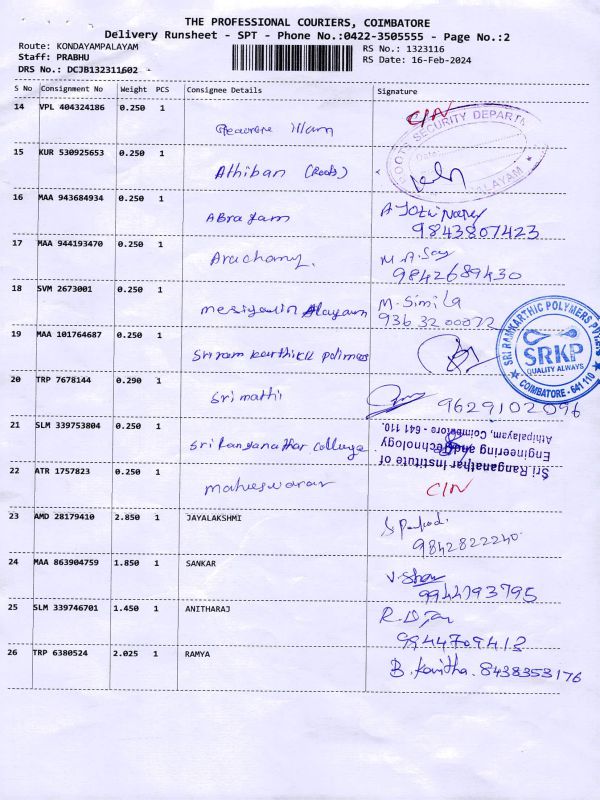 THE PROFESSIONAL COURIERS, COIMBATORE
Delivery Runsheet - SPT - Phone No.:0422-3505555 - Page No.:2
Route: KONDAYAMPALAYAM
RS No.: 1323116
Staff: PRABHU
RS Date: 16-Feb-2024
DRS No.: DCJB132311602
S No Consignment No Weight PCS Consignee Details Signature
14 VPL 404324186 0.250 1 CIN
SECURITY DEPART
15 KUR 530925653 0.250 1 Athiban (Roots)
16 MAA 943684934 0.250 1 Abragam
9843807423
17 MAA 944193470 0.250 1 Aruchamy.
9842689430
18 SVM 2673001 0.250 1 M. Simila
93632 00072
19 MAA 101764687 0.250 1 Sriram karthikk polimers
SRI RAMKARTHIC POLYMERS PVT LTD
SRKP
QUALITY ALWAYS
COIMBATORE - 641 110
20 TRP 7678144 0.290 1 Sri mathi
9629102096
21 SLM 339753804 0.250 1 Sri Ranganathar College
Sri Ranganathar Institute of
Engineering and Technology
Athipalayam, Coimbatore - 641 110.
22 ATR 1757823 0.250 1 Maheswaran CIN
23 AMD 28179410 2.850 1 JAYALAKSHMI
9842822240
24 MAA 863904759 1.850 1 SANKAR
9944793795
25 SLM 339746701 1.450 1 ANITHARAJ
9944709413
26 TRP 6380524 2.025 1 RAMYA B. Kavitha. 8438353176